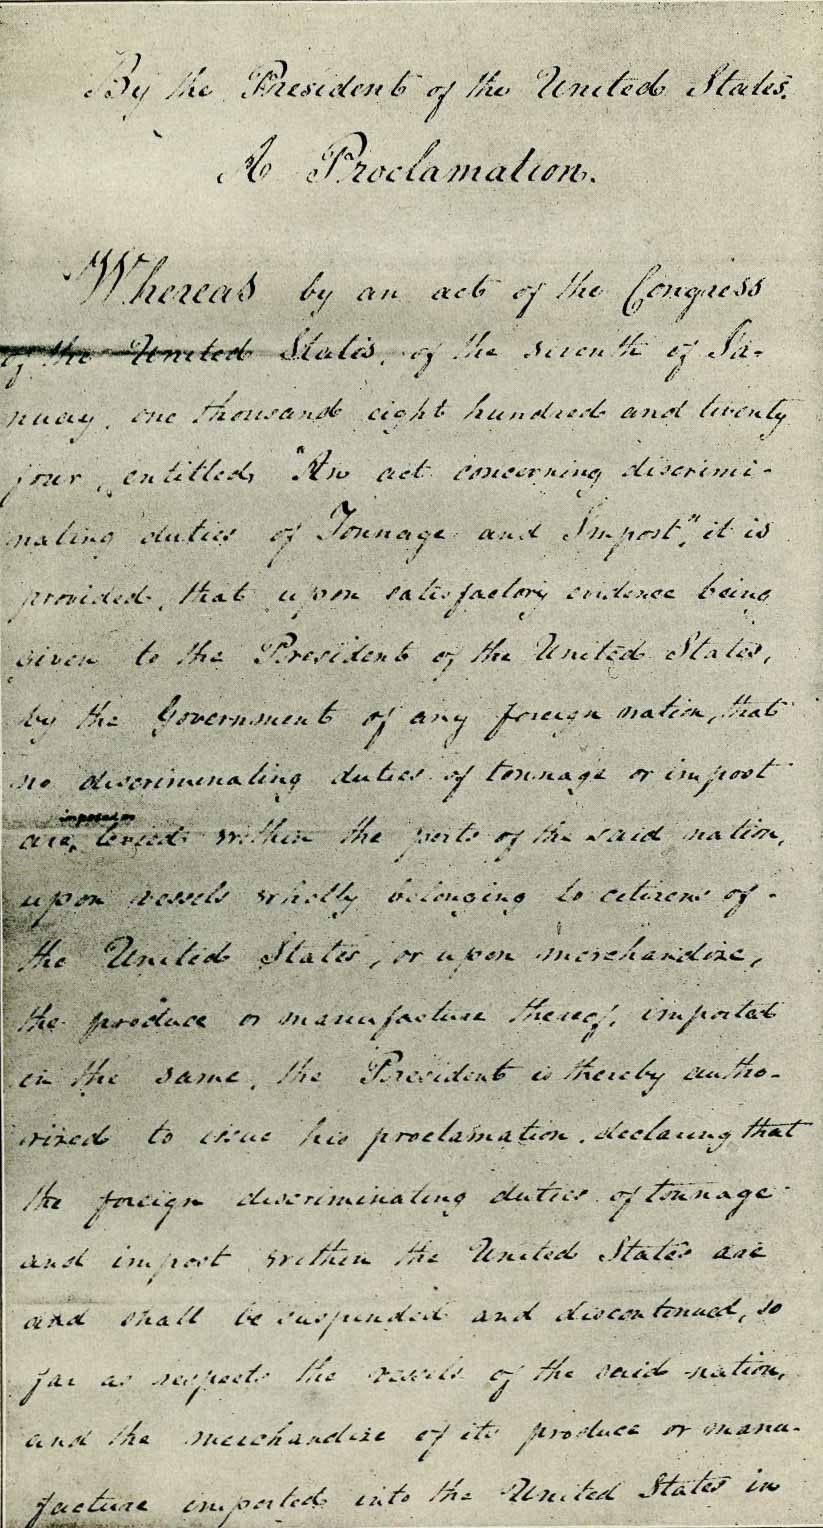 By the President of the United States.
A Proclamation.
Whereas by an act of the Congress
of the United States, of the seventh of Ja-
nuary, one thousand eight hundred and twenty
four, entitled, "An act concerning discrimi-
nating duties of Tonnage and Impost", it is
provided, that upon satisfactory evidence being
given to the President of the United States,
by the Government of any foreign nation, that
no discriminating duties of tonnage or impost
imposed or
are, levied within the ports of the said nation,
upon vessels wholly belonging to citizens of
the United States, or upon merchandize,
the produce or manufacture thereof, imported
in the same, the President is thereby autho-
rized to issue his proclamation, declaring that
the foreign discriminating duties of tonnage
and impost within the United States are
and shall be suspended and discontinued, so
far as respects the vessels of the said nation,
and the merchandize of its produce or manu-
facture imported into the United States in